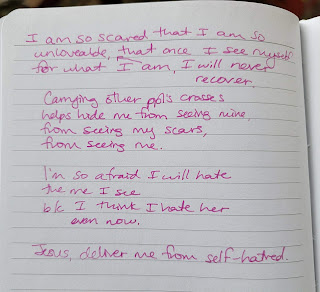 I am so scared that I am so
unloveable, that once I see myself
for what I am, I will never
recover.
Carrying other ppl's crosses
helps hide me from seeing mine,
from seeing my scars,
from seeing me..
I'm so afraid I will hate
the me I see
b/c I think I hate her
even now.
Jesus, deliver me from self-hatred.